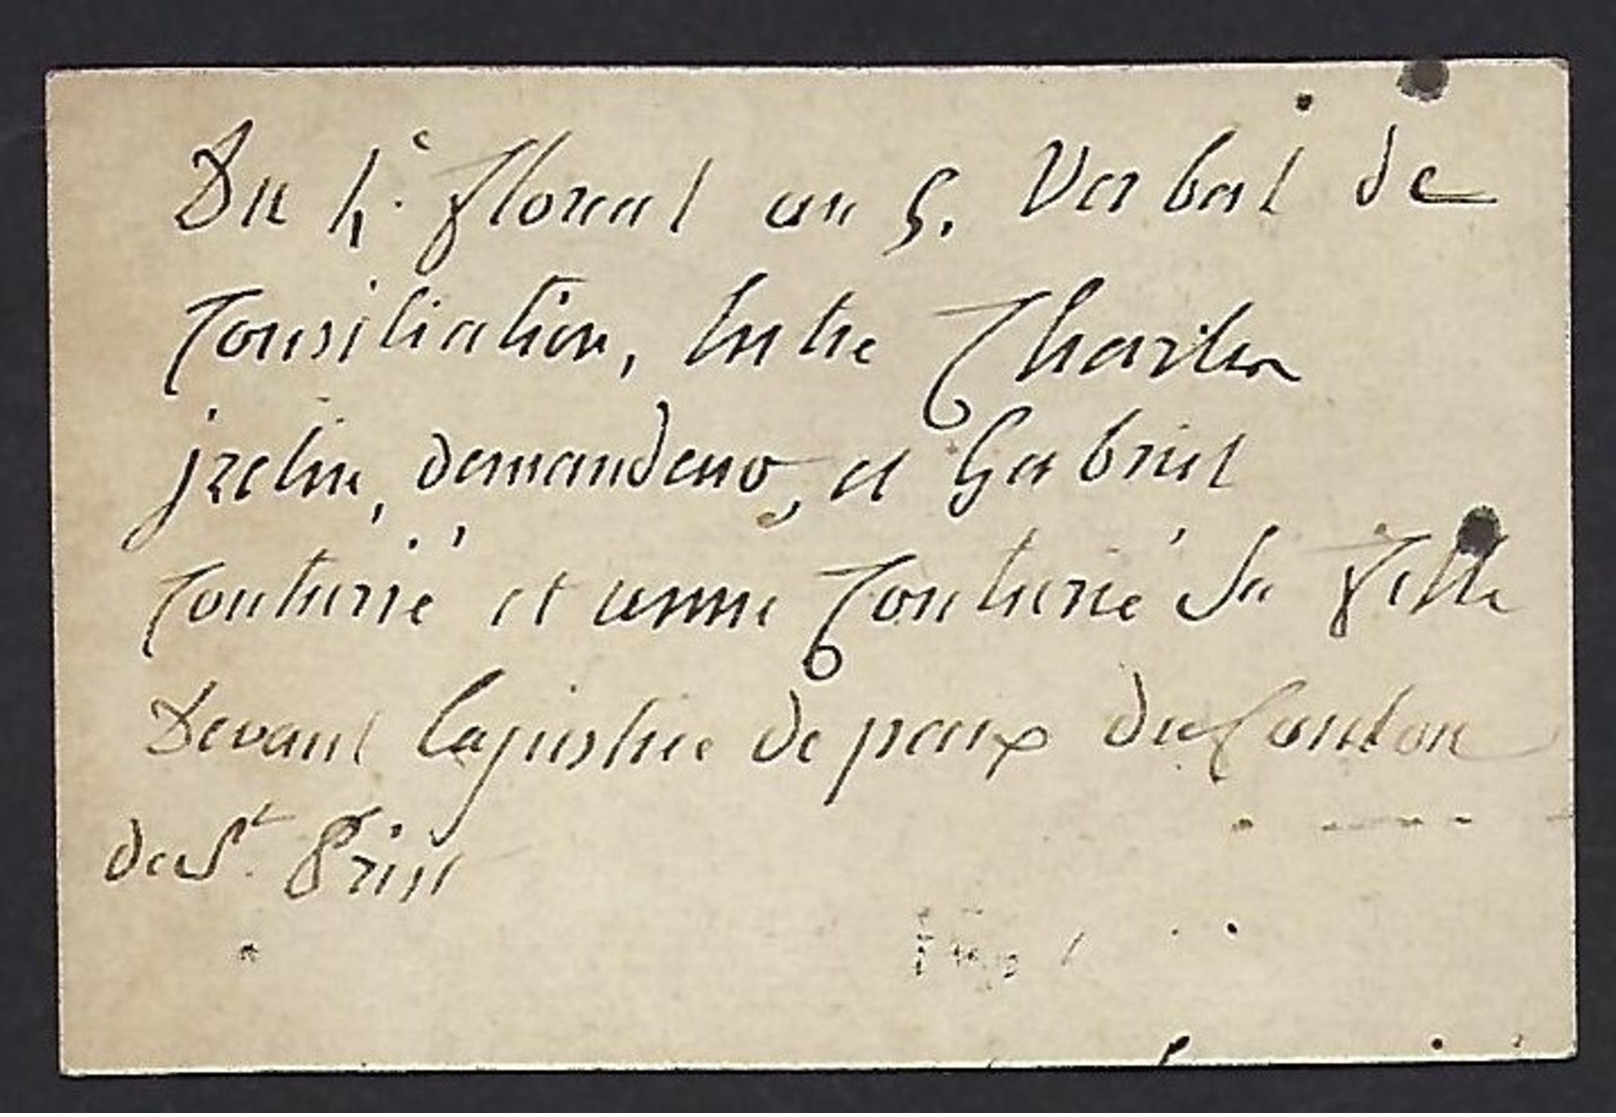 Du 4.e floreal an 5. Verbal de
Consiliation, Entre Charles
jzelin, demandeur, et Gabriel
Couturié et anne Couturié Sa fille
Devant lajustice de paix du Canton
de St. Prist